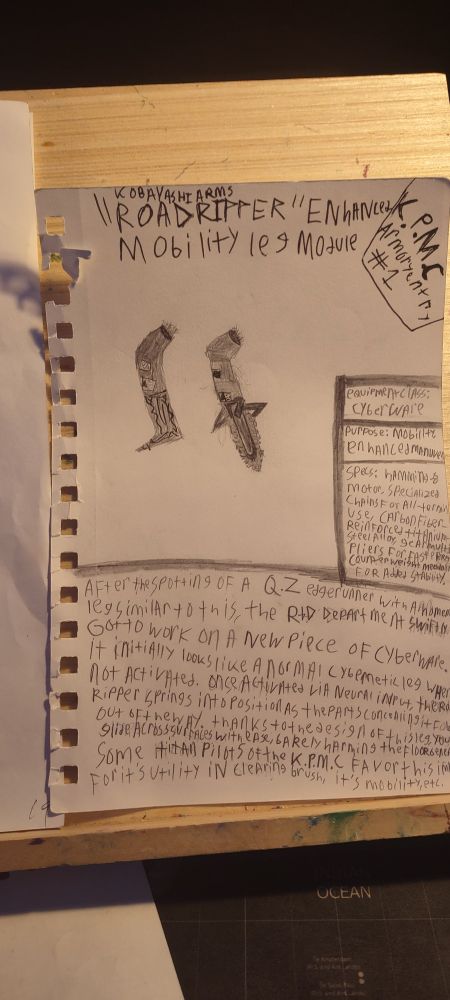 KOBAYASHI ARMS
"ROADRIPPER" ENhANCED
MObility leg MOdule
K.P.M.C
ArmoryEntry
#1
EquipmentClass:
CybERWARE
PuRPOSE: MObility
ENhANCED
SpEcs:
MOtOR, SpECIAlizED
ChAINS FOR All-
USE, CARbON FibER
REINFORCED titANium
StEEl Alloy,
FOR FASt
COuntERwEight
FOR AddEd StAbility.
AFtER thEspOttiNg OF A Q.Z EdgERuNNER with A
lEg SimilAR tO this, thE R+D DEpARtmENt Swiftly
GOt tO wORk ON A NEw piECE OF CYbERwARE.
It iNitiAlly lOOks likE A NORMAl CYbERNEtiC lEg whEN
NOt ActivAtEd. ONCE ActivAtEd viA NEuRAl iNput, thE
RippER SpRiNgs iNtO pOsitiON As thE pARts CONCEAliNg it
Out OF thE wAy. thANks tO thE dEsigN OF this lEg, yOu
glidE AcROss suRFAcEs with EASE, bARElY hARmiNg thE FlOOR
SOmE PilOts OF thE K.P.M.C FAvOR this
FOR it's utility iN ClEARiNg bRush, it's mObility, Etc.
INDIAN
OCEAN